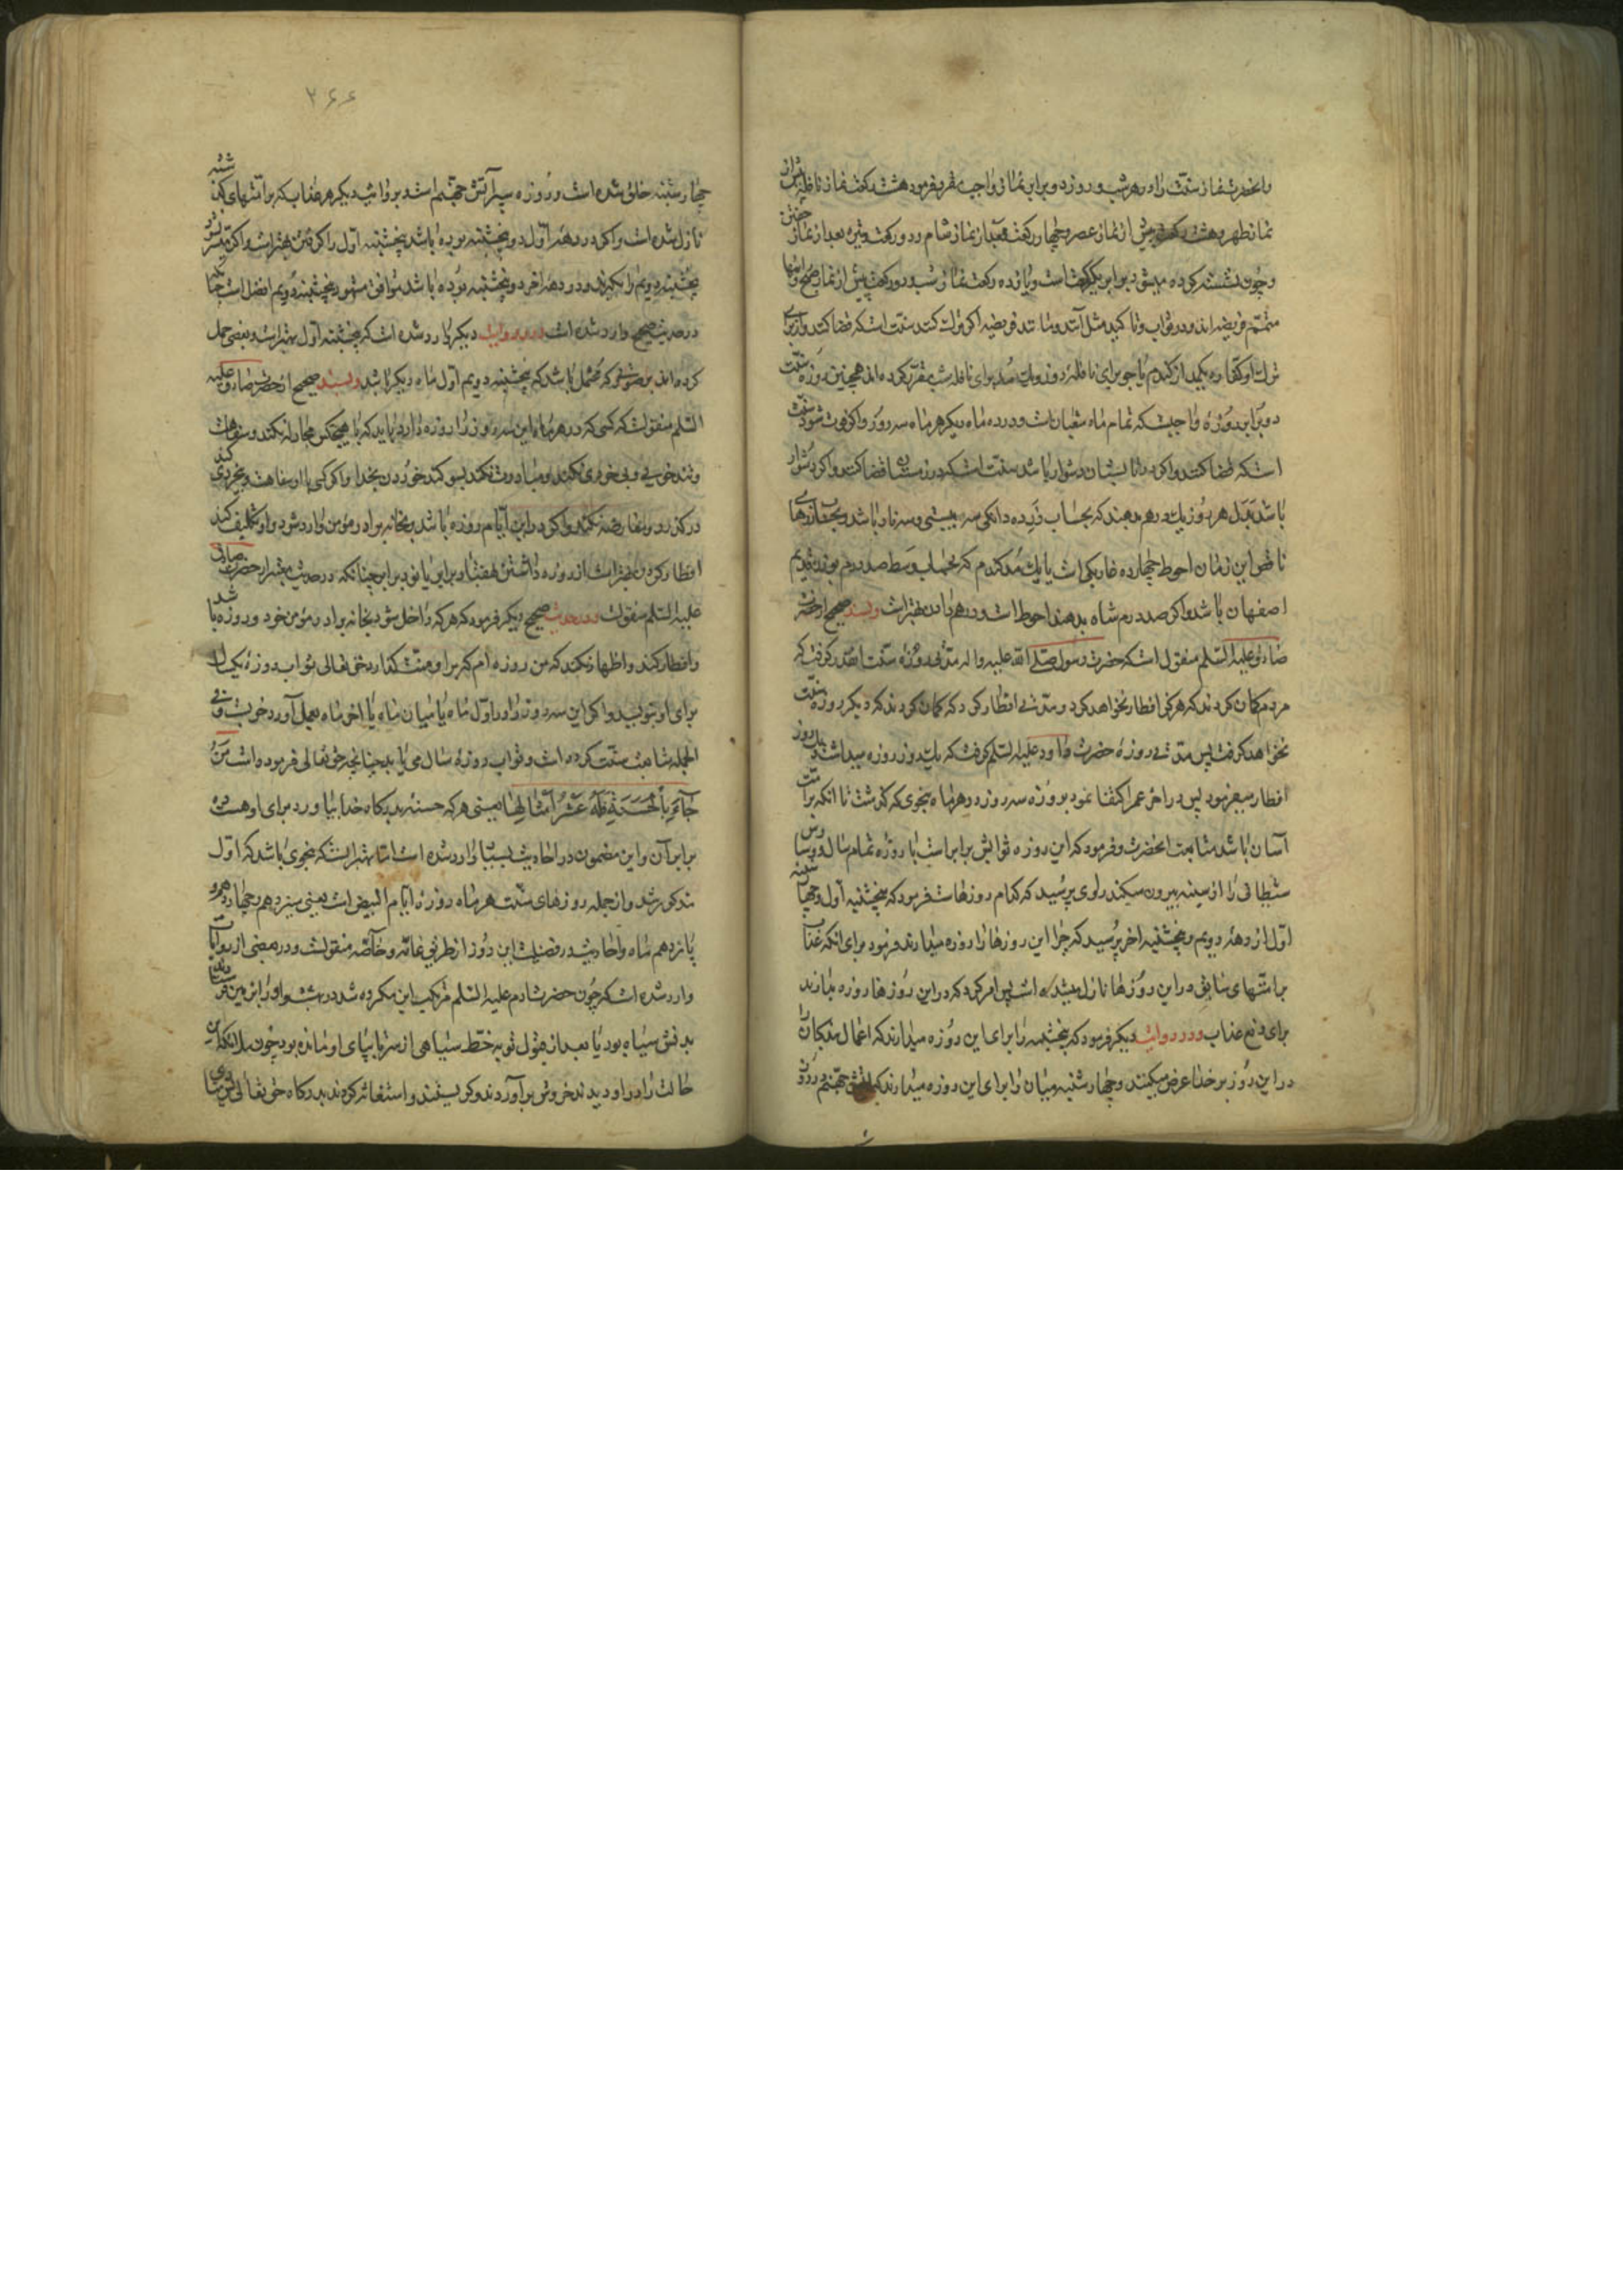 وانحضرت نماز سنت را در هر شب و روز دو برابر نماز واجب مقرر فرمود هشت رکعت نماز نافله پیش از
نماز ظهر و هشت رکعت پیش از نماز عصر و چهار رکعت بعد از نماز شام و دو رکعت وتیره بعد از نماز خفتن
و چون نشسته کرده میشود برابر یکرکعت است و یازده رکعت نماز شب و دو رکعت پیش از نماز صبح و اینها
متمم فریضه اند و در ثواب و تاکید مثل آنند و مانند فریضه اگر ترک کنند سنت است که قضا کنند و از برای
ترک او کفاره یکمد از گندم یا جو برای نافلهٔ روز و یک مد برای نافله شب مقرر کرده اند همچنین روزه سنت
دو برابر روزهٔ واجبست که تمام ماه شعبان است و در ده ماه دیگر هر ماه سه روز و اگر فوت شود سنت
است که قضا کنند و اگر در تابستان دشوار باشد سنت است که در زمستان قضا کنند و اگر دشوار
باشد بدل هر روز یک درهم بدهند که بحساب زر ده دانکی سه بیستی و سه ناد باشد و بحساب زرهای
ناقص این زمان احوط چهارده غازبکی است یا یک مد گندم که بحساب وسط صد درم بوزن قدیم
اصفهان باشد و اگر صد درم شاه بدهند احوط است و درهم دادن بهتر است وبسند صحیح از حضرت
صادق علیه السلم منقول است که حضرت رسول صلی الله علیه واله مدتی روزه سنت انقدر گرفت که
مردم گمان کردند که هرگز افطار نخواهد کرد و مدتی افطار کرد که گمان کردند که دیگر روزه سنت
نخواهد گرفت پس مدتی روزهٔ حضرت داود علیه السلم گرفت که یک روز روزه میداشت و یک روز
افطار میفرمود پس در اخر عمر اکتفا نمود بروزه سه روز در هر ماه بنحوی که گذشت تا انکه بر امت
آسان باشد متابعت انحضرت و فرمود که این روزه ثوابش برابر است با روزه تمام سال و وسا وس
شیطانی را از سینه بیرون میکند راوی پرسید که کدام روزها ست فرمود که پنجشنبه آول و چهار شنبه
اول از دههٔ دویم و پنجشنبه اخر پرسید که چرا این روزها را روزه میدارند فرمود برای انکه عذاب
بر امتهای سابق در این روزها نازل میشده است پس امر کرد که در این روزها روزه بدارند
برای دفع عذاب ودر روایت دیگر فرمود که پنجشنبه را برای این روزه میدارند که اعمال بندگان را
در این روز بر خدا عرض میکنند و چهارشنبه میان را برای این روزه میدارند که آتش جهنم در روز
۲۶۶
چهارشنبه خلق شده است و روزه سپر آتش جهنم است و بروایت دیگر هر عذاب که بر امتهای گذشته
نازل شده است و اگر در دههٔ اول دو پنجشنبه بوده باشد پنجشنبه اول را گرفتن بهتر است و اگر
پنجشنبه دویم را بگیرد و در دهه اخر دو پنجشنبه بوده باشد موافق مشهور پنجشنبه دویم افضل است چنا نکه
در حدیث صحیح وارد شده است ودر روایت دیگر وارد شده است که پنجشنبه آول بهتر است و بعضی حمل
کرده اند بر صورتی که محتمل باشد که پنجشنبه دویم آول ماه دیگر باشد وبسند صحیح از حضرت صادق علیه
السلم منقول است که کسی که در هر ماه این سه روز را روزه دارد باید که با هیچکس مجادله نکند و سفاهت
و تندخویی و بی خردی نکند و مبادرت نکند بسوگند خوردن بخدا و اگر کسی با او سفاهت و بیخردی کند
در گذرد و معارضه نکند و اگر در این آیام روزه باشد و بخانه برادر مؤمن وارد شود و او تکلیف کند
افطار کردن بهتر است از روزه داشتن بهفتاد برابر یا نود برابر چنانکه در حدیث معتبر از حضرت صادق
علیه السلم منقول است ودر حدیث صحیح دیگر فرمود که هر که داخل شود بخانه برادر مؤمن خود و روزه با شد
و افطار کند و اظهار نکند که من روزه ام که بر او منت گذارد حق تعالی ثواب روزهٔ یکسال
برای او بنویسد و اگر این سه روز را در اول ماه یا میان ماه یا اخر ماه بعمل آورد خوبست و فی
الجمله متابعت سنت کرده است و ثواب روزهٔ سال می یابد چنانچه حق تعالی فرموده است مَنْ
جَآءَ بِالْحَسَنَةِ فَلَهُ عَشْرُ آمْثَالِهَا یعنی هر که حسنهٔ بدرگاه خدا بیاورد برای او هست ده
برابر آن و این مضمون در احادیث بسیار وارد شده است اما بهتر انست که بنحوی باشد که اول
مذکور شد و از جمله روزهای سنت هر ماه روزهٔ ایام البیض است یعنی سیزدهم و چهاردهم و
پانزدهم ماه و احادیث در فضیلت این روز از طریق عامه و خآصه منقولست و در بعضی از روایات
وارد شده است که چون حضرت ادم علیه السلم مرتکب این مکروه شد در بهشت و او را بزمین فرستادند
بدنش سیاه بود یا بعد از قبول توبه خط سیاهی از سر تا بپای او مانده بود چون ملائکه این
حالت را در او دیدند خروش بر آوردند و گریستند و استغاثه کردند بدرگاه حق تعالی